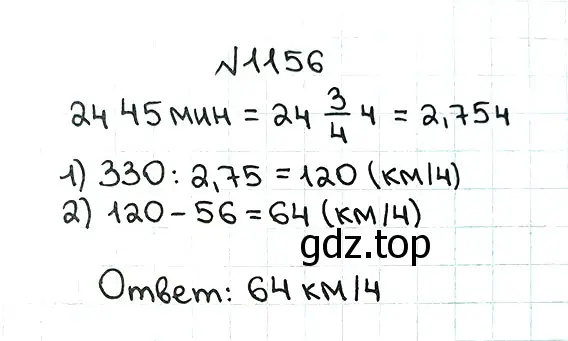 №1156
2ч 45мин = 2ч 3/4 ч = 2,75ч
1) 330 : 2,75 = 120 (км/ч)
2) 120 - 56 = 64 (км/ч)
gdz.top
Ответ: 64 км/ч